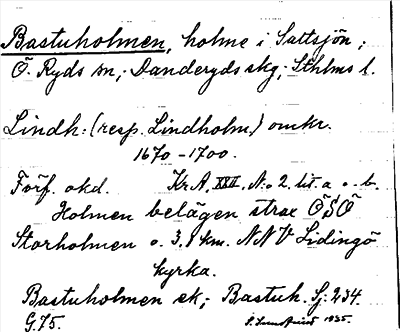 Bastuholmen, holme i Saltsjön;
Ö. Ryds sn; Danderyds skg; Sthlms l.
Lindh: (resp. Lindholm) omkr.
1670-1700.
Förf. okd. Kr.A. XXII. No 2. lit. a o. b.
Holmen belägen strax ÖSÖ
Storholmen o. 3,8 km. NNV Lidingö
kyrka.
Bastuholmen ek; Bastuh. Sj: 234.
G.75. 1935.